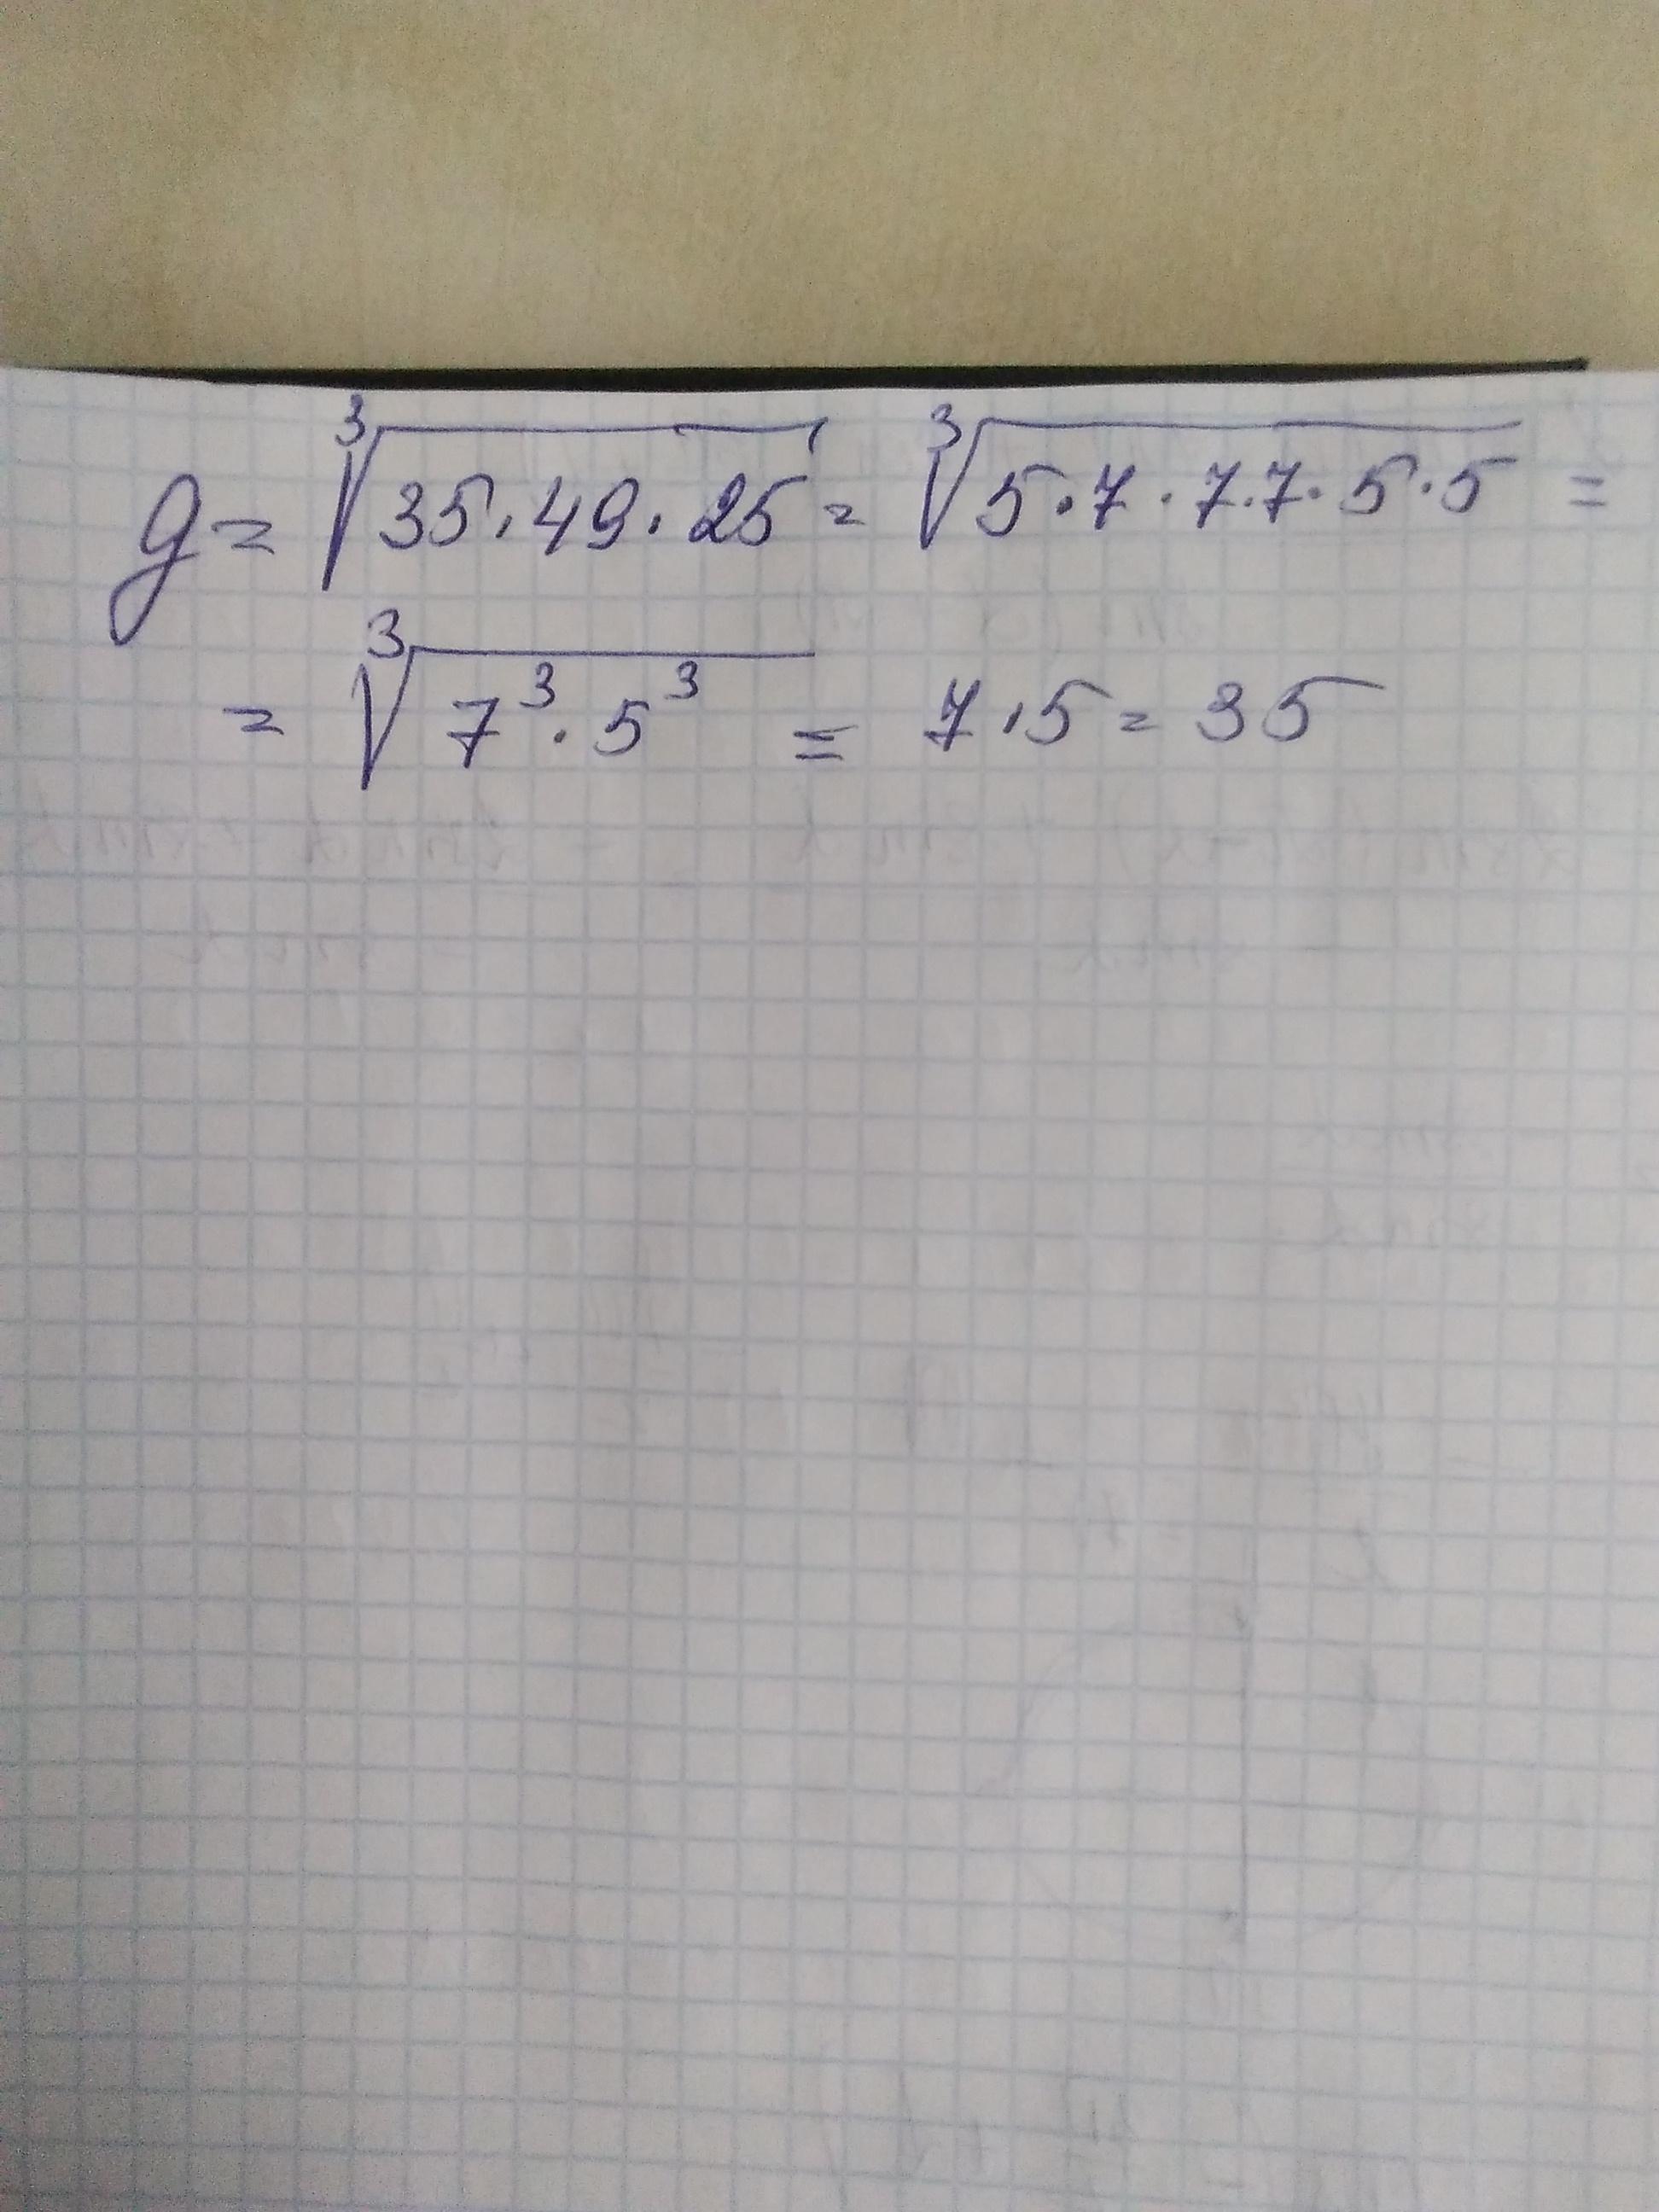 g = ∛35·49·25 = ∛5·7·7·7·5·5 =
= ∛7³·5³ = 7·5 = 35